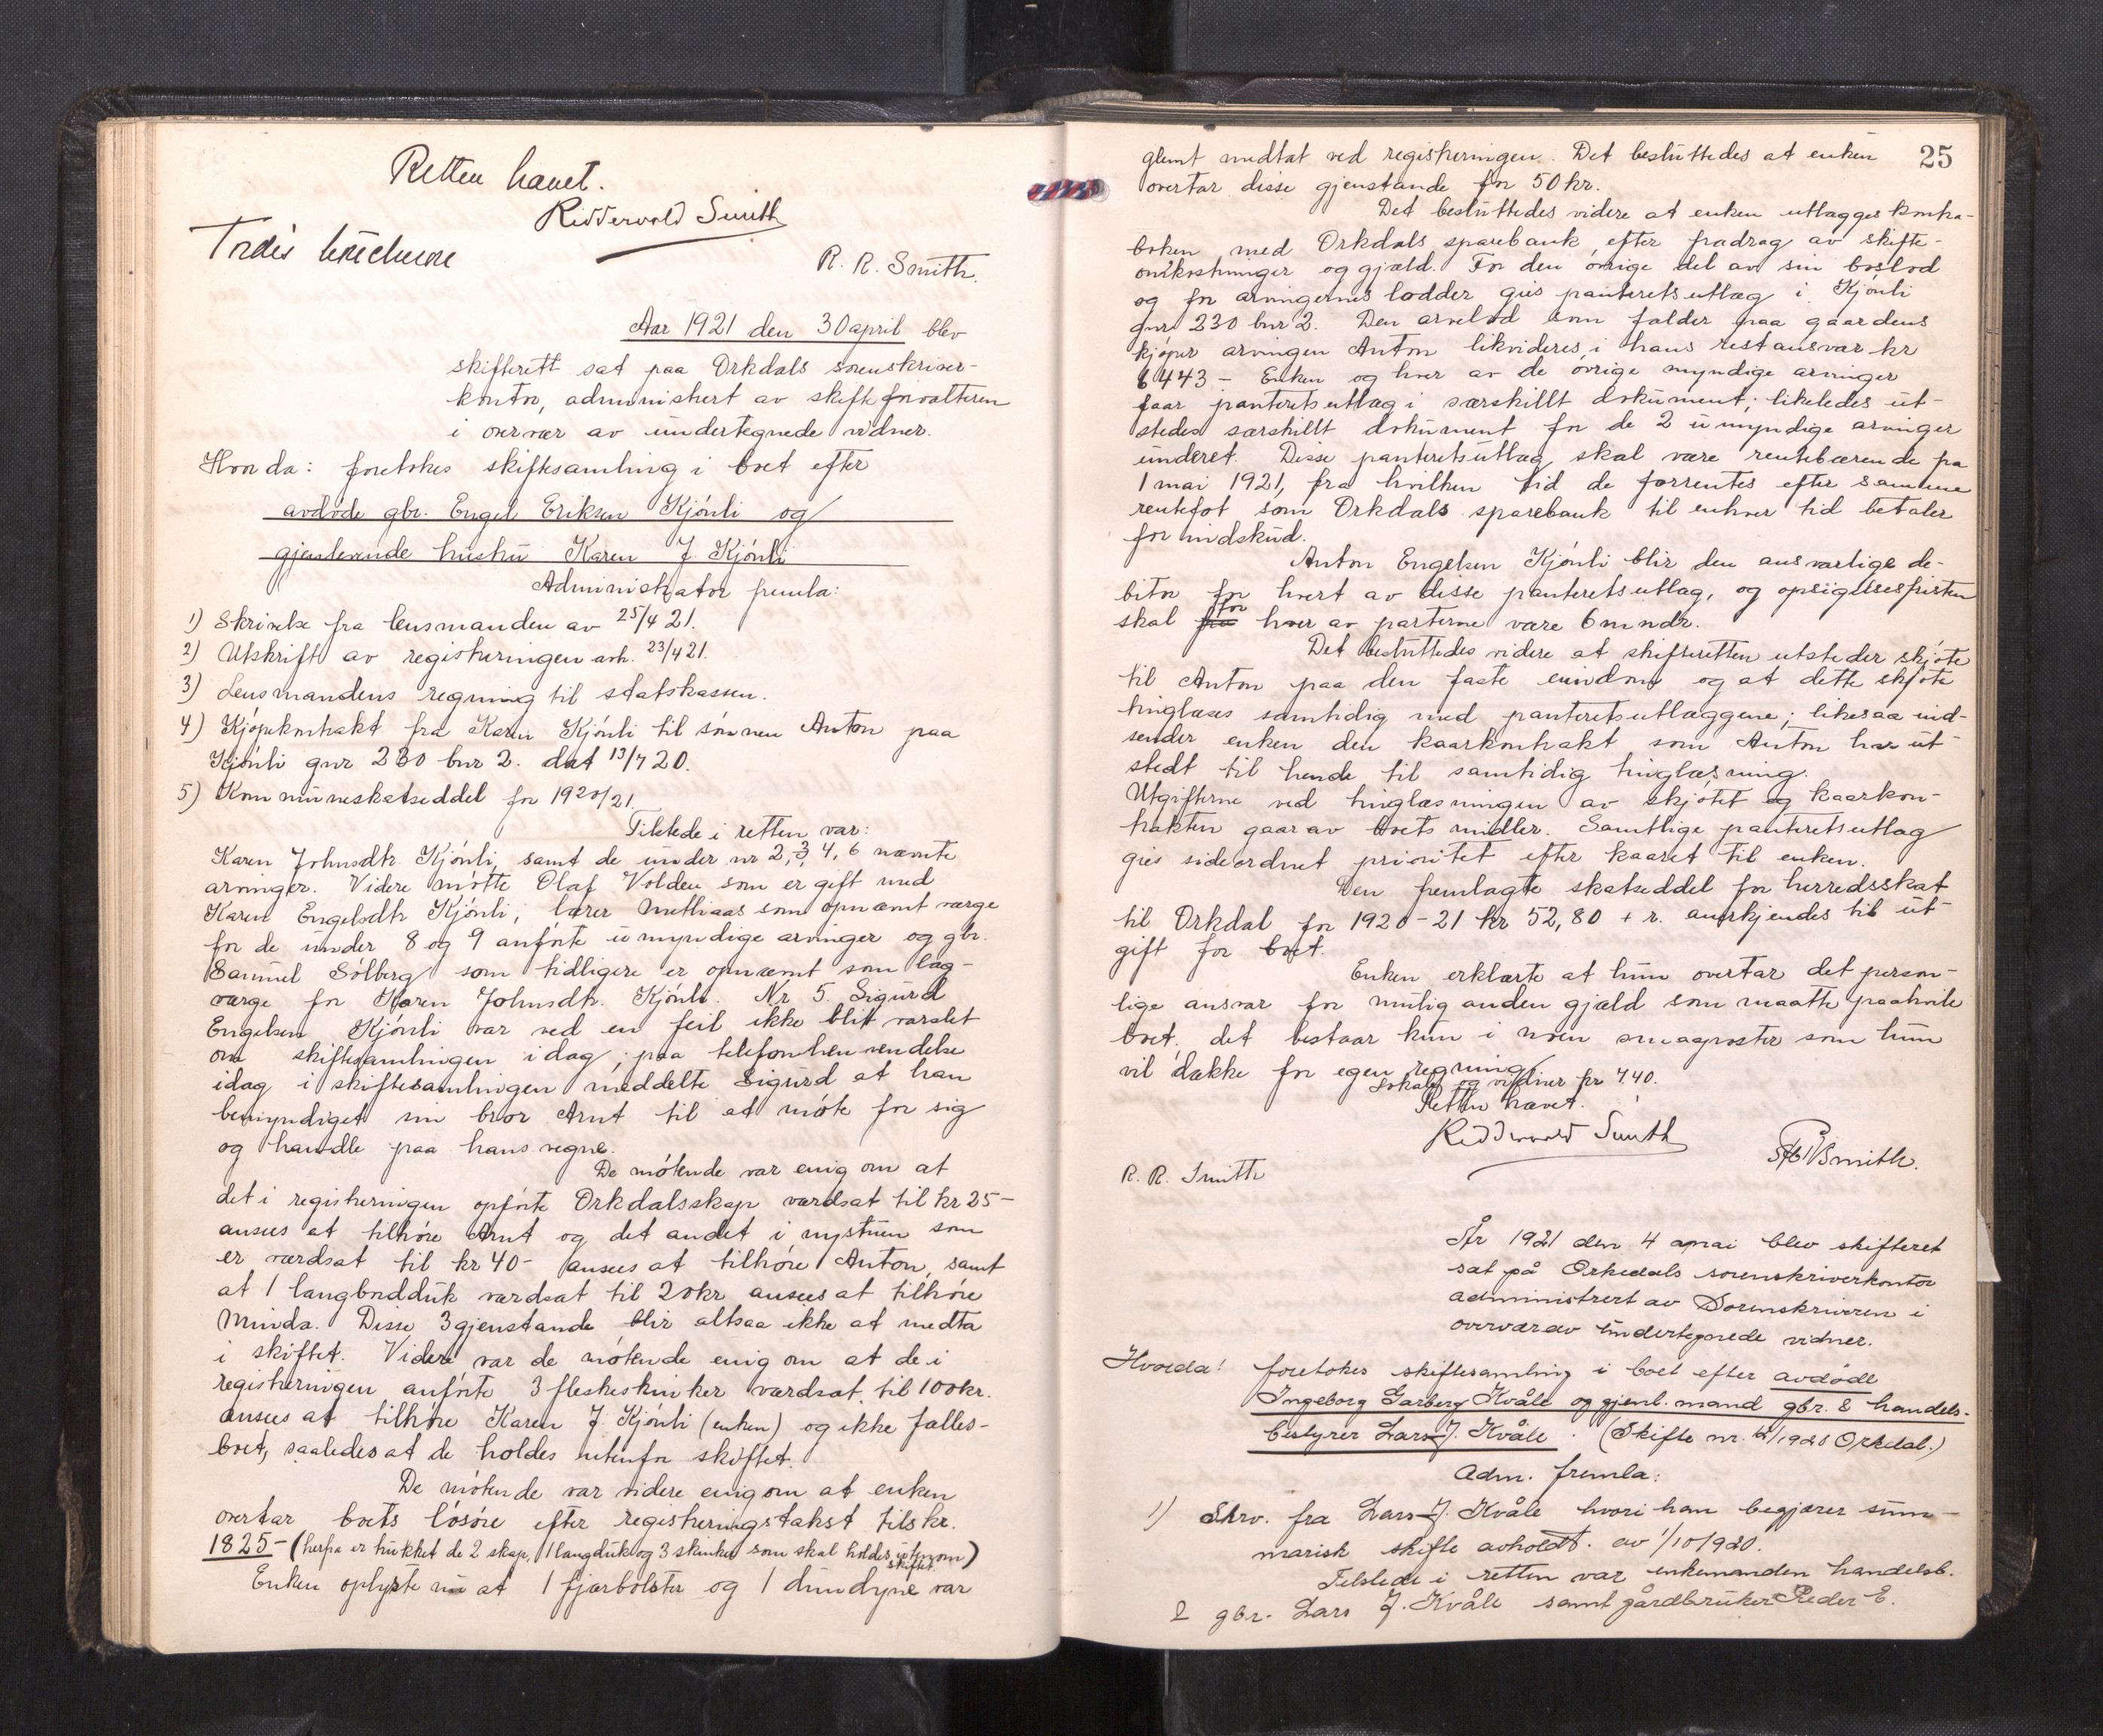 Retten hævet.
Ridderwold Smith
R. R. Smith.
Aar 1921 den 30 april blev
skifterett sat paa Orkdals sorenskriver-
kontor, administrert av skifteforvalteren
i overvær av undertegnede vidner.
Hvorda: foretokes skiftesamling i boet efter
avdøde gbr. Engel Eriksen Kjønli og
gjenlevende hustru Karen J. Kjønli
Administrator fremla:
1) Skrivelse fra lensmanden av 25/4 21.
2) Utskrift av registreringen avh. 23/4 21.
3) Lensmandens regning til statskassen.
4) Kjøpekontrakt fra Karen Kjønli til sønnen Anton paa
Kjønli gnr 230 bnr 2. dat 13/7 20.
5) Kommuneskatseddel for 1920/21.
Tilstede i retten var:
Karen Johnsdtr. Kjønli, samt de under nr 2, 3, 4, 6 nævnte
arvinger. Videre møtte Olaf Volden som er gift med
Karen Engelsdtr Kjønli, lærer Methiaas som opnævnt værge
for de under 8 og 9 anførte umyndige arvinger og gbr.
Samuel Sølberg som tidligere er opnævnt som lag-
værge for Karen Johnsdtr. Kjønli. Nr 5. Sigurd
Engelsen Kjønli var ved en feil ikke blit varslet
om skiftesamlingen idag; paa telefonhenvendelse
idag i skiftesamlingen meddelte Sigurd at han
bemyndiget sin bror Arnt til at møte for sig
og handle paa hans vegne.
De møtende var enig om at
det i registreringen opførte Orkdalsskap værdsat til kr 25-
ansees at tilhøre Arnt og det andet i nystuen som
er værdsat til kr 40- ansees at tilhøre Anton, samt
at 1 langbordduk værdsat til 20 kr ansees at tilhøre
Minda. Disse 3 gjenstande blir altsaa ikke at medta
i skiftet. Videre var de møtende enig om at de i
registreringen anførte 3 fleskeskinker værdsat til 100 kr.
ansees at tilhøre Karen J. Kjønli (enken) og ikke fælles-
boet, saaledes at de holdes utenfor skiftet.
De møtende var videre enig om at enken
overtar boets løsøre efter registreringstakst tils kr.
1825- (herfra er trukket de 2 skap, 1 langduk og 3 skinker som skal holdes utenom)
skiftet.
Enken oplyste nu at 1 fjærbolster og 1 dundyne var
25
glemt medtat ved registreringen. Det besluttedes at enken
overtar disse gjenstande for 50 kr.
Det besluttedes videre at enken utlægges kontra-
boken med Orkdals sparebank efter fradrag av skifte-
omkostninger og gjæld. For den øvrige del av sin boslod
og for arvingernes lodder gies panteretsutlæg i Kjønli
gnr 230 bnr 2. Den arvelod som falder paa gaardens
kjøper arvingen Anton likvideres i hans restansvar kr
6443- Enken og hver av de øvrige myndige arvinger
faar panteretsutlæg i særskillt dokument; likeledes ut-
stedes særskillt dokument for de 2 umyndige arvinger
underet. Disse panteretsutlæg skal være rentebærende fra
1 mai 1921, fra hvilken tid de forrentes efter samme
rentefot som Orkdals sparebank til enhver tid betaler
for indskud.
Anton Engelsen Kjønli blir den ansvarlige de-
bitor for hvert av disse panteretsutlæg, og opsigelsesfristen
skal fra for hver av parterne være 6 mndr.
Det besluttedes videre at skifteretten utsteder skjøte
til Anton paa den faste eiendom og at dette skjøte
tinglæses samtidig med panteretsutlæggene; likesaa ind-
sender enken den kaarkontrakt som Anton har ut-
stedt til hende til samtidig tinglæsning.
Utgifterne ved tinglæsningen av skjøtet og kaarkon-
trakten gaar av boets midler. Samtlige panteretsutlæg
gies sideordnet prioritet efter kaaret til enken.
Den fremlagte skatseddel for herredsskat
til Orkdal for 1920-21 kr 52,80 + r. anerkjendes til ut-
gift for boet.
Enken erklærte at hun overtar det person-
lige ansvar for mulig anden gjæld som maatte paahvile
boet; det bestaar kun i noen smaaposter som hun
vil dække for egen regning.
Lokale og vidner kr 7.40.
Retten hævet.
Ridderwold Smith
R. R. Smith
Smith.
År 1921 den 4 mai blev skifteret
sat på Orkedals sorenskriverkontor
administrert av Sorenskriveren i
overvær av undertegnede vidner.
Hvorda! foretokes skiftesamling i boet efter avdøde
Ingeborg Garberg Kvåle og gjenl. mand gbr. & handels-
bestyrer Lars J. Kvåle. (Skifte nr. /1920 Orkdal.)
Adm. fremla:
1) Skrv. fra Lars J. Kvåle hvori han begjærer sum-
marisk skifte avholdt. av 1/10 1920.
Tilstede i retten var enkemanden handelsb.
& gbr. Lars J. Kvåle samt gårdbruker Peder E.